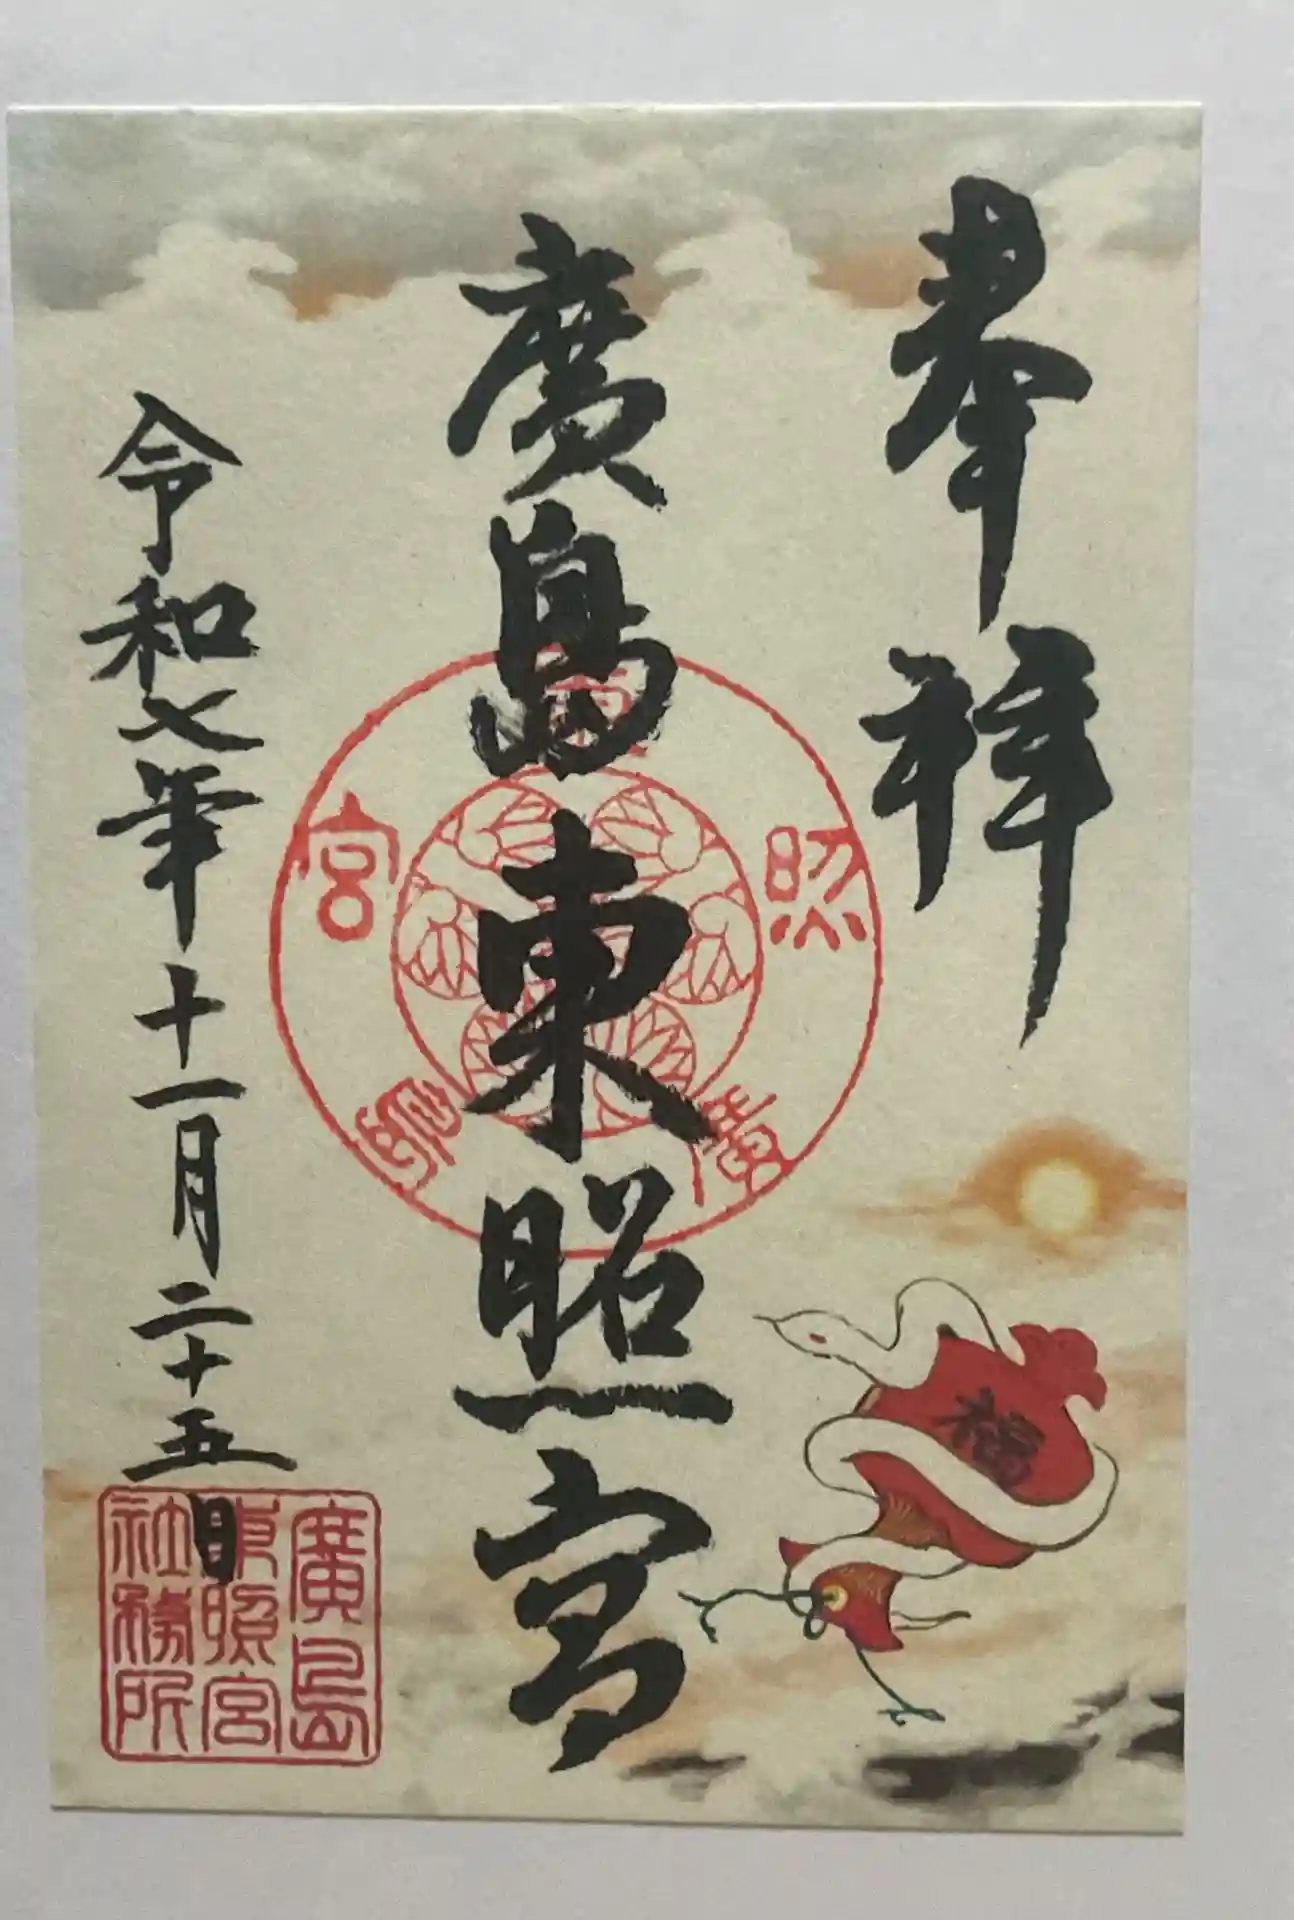 奉拝
廣島東照宮
令和七年十一月二十五日
東
照
宮
廣
島
福
廣島
東照宮
社務所